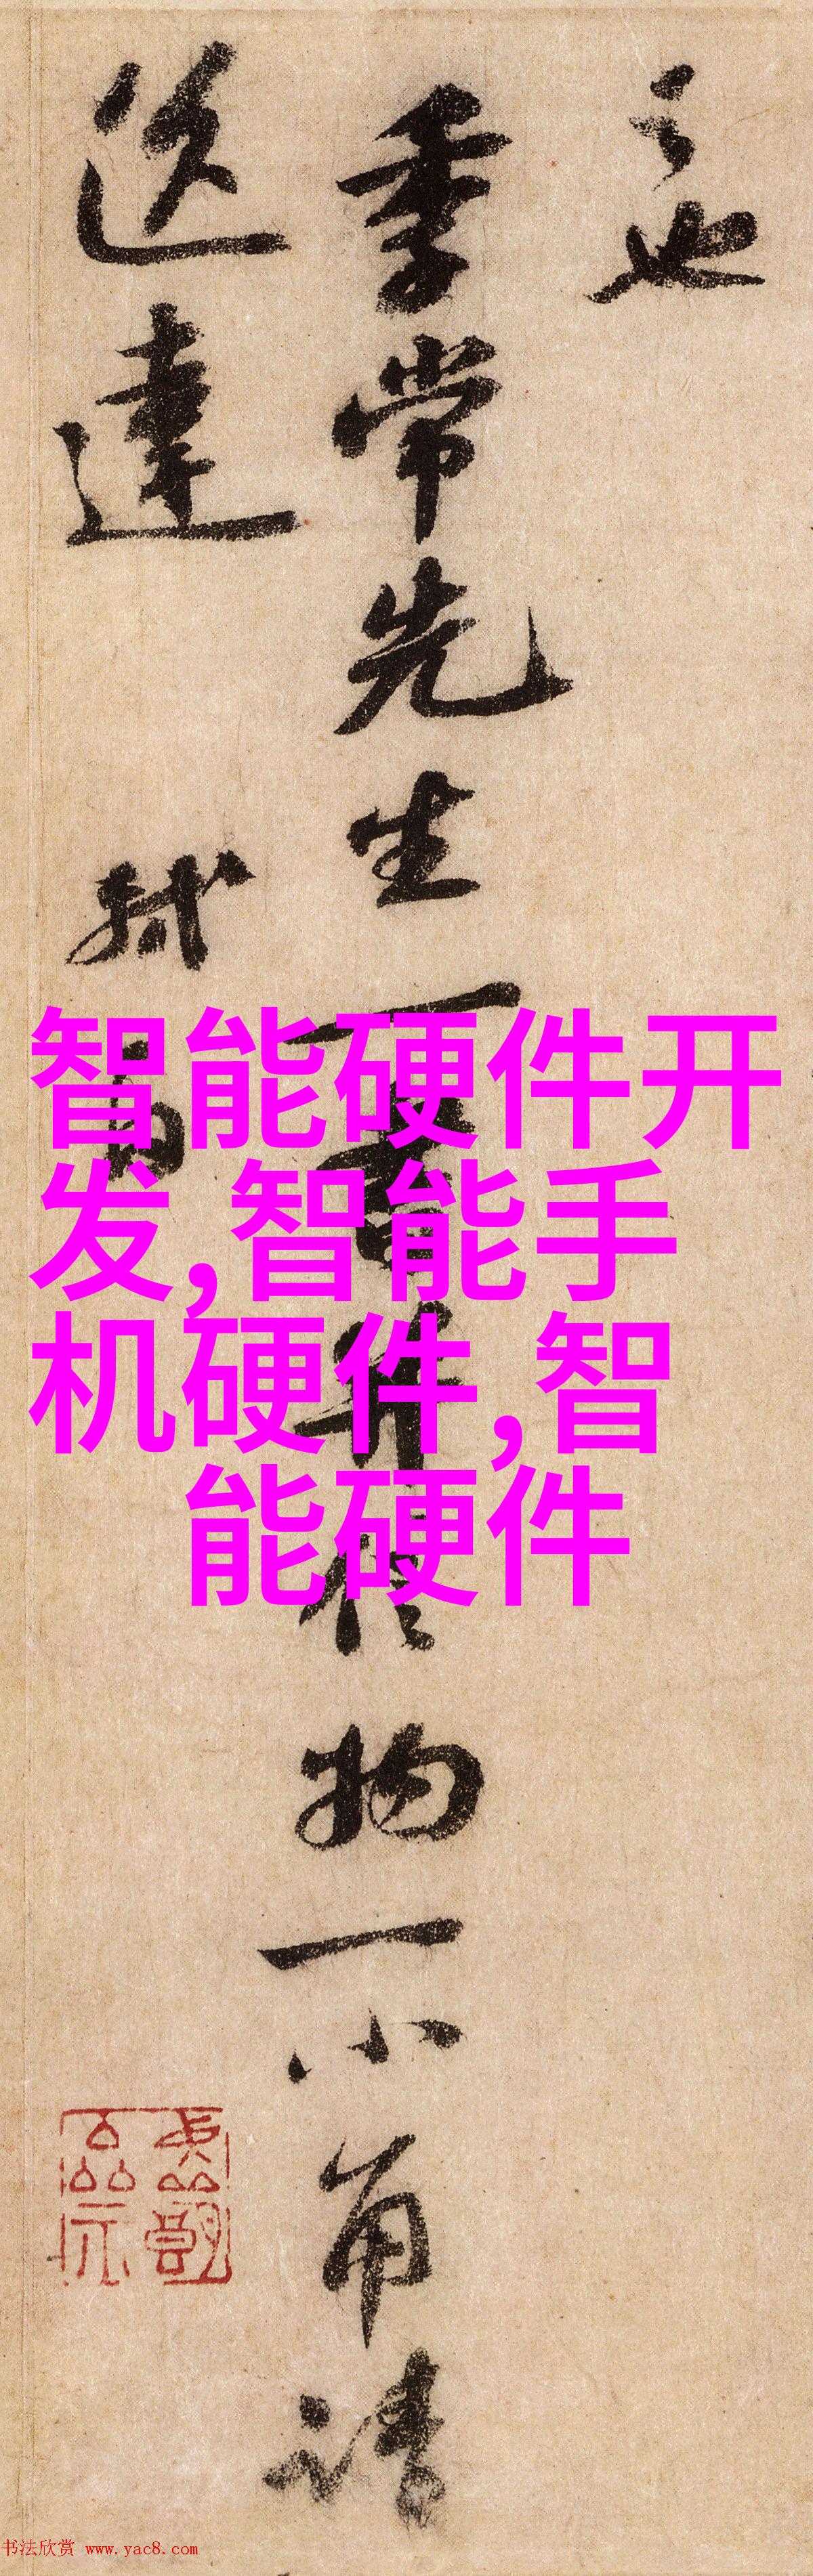 之也
季常先生一書并信物一小角請
送達 軾白
智能硬件开
发,智能手
机硬件,智
能硬件
书法欣赏 www.yac8.com